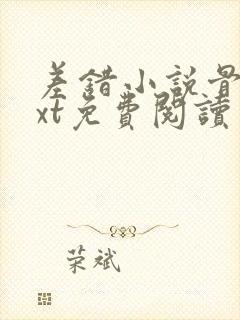 差錯小說
xt免費閱讀
荣斌